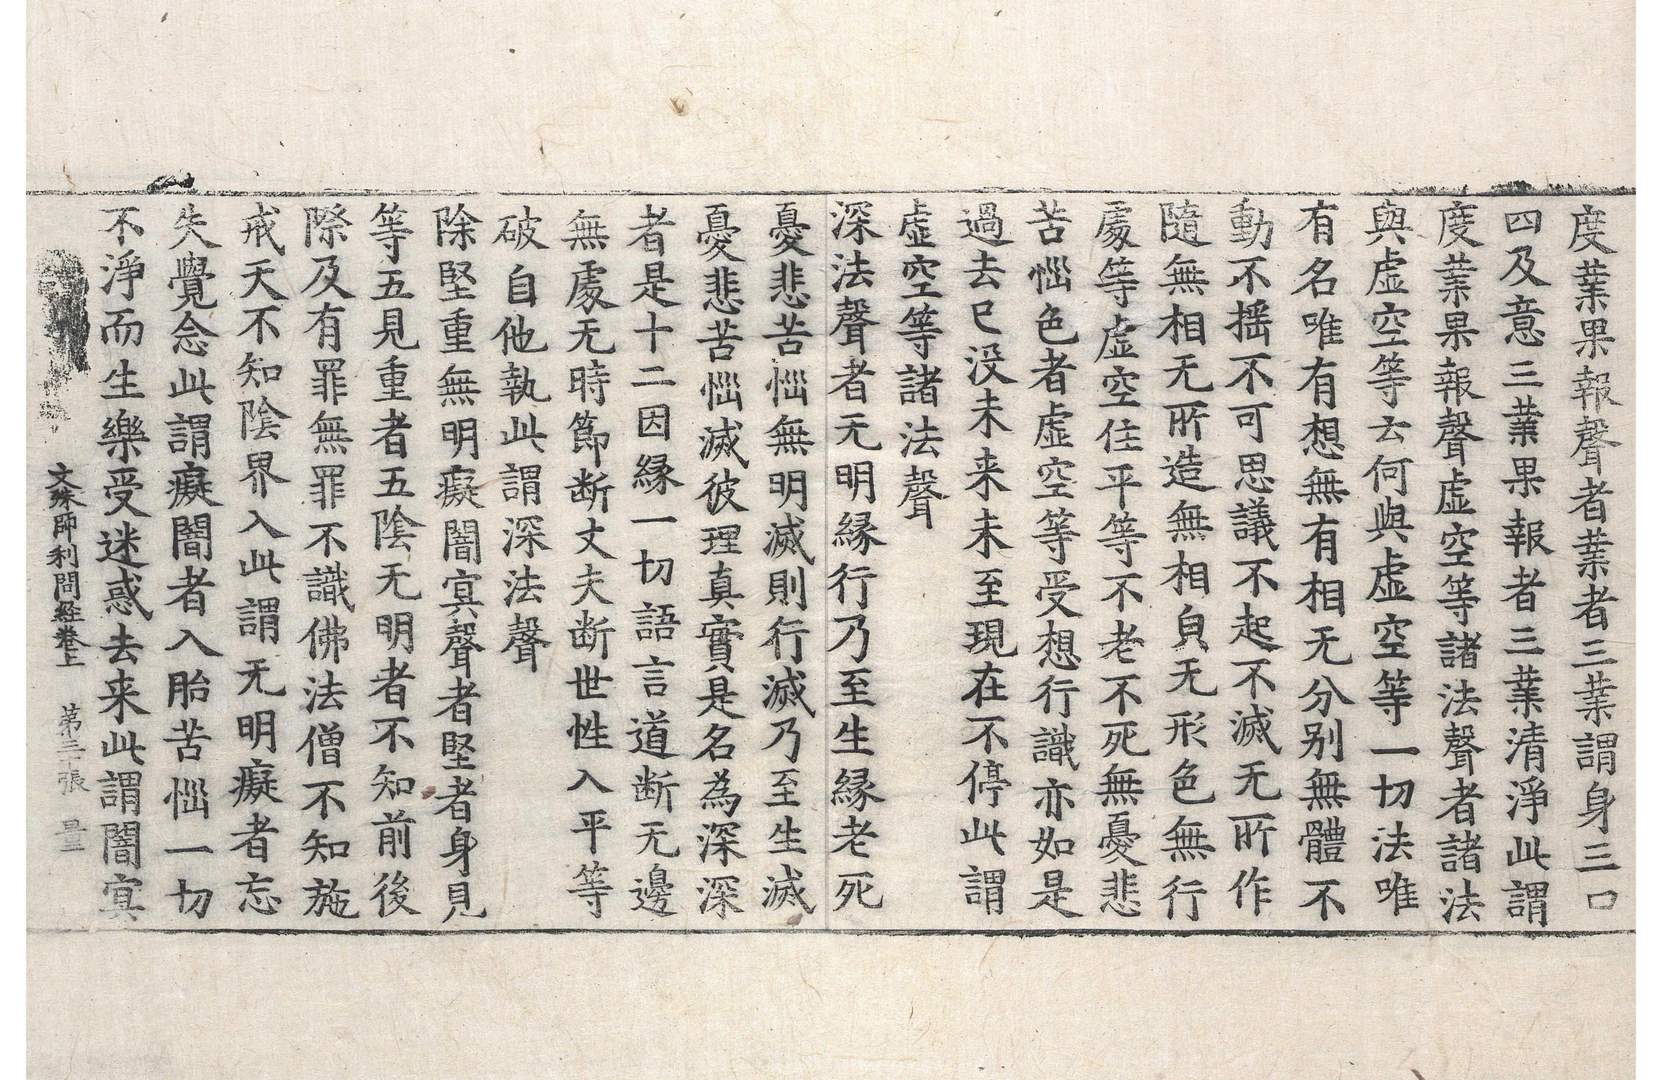 度業果報聲者業者三業謂身三口
四及意三業果報者三業清淨此謂
度業果報聲虛空等諸法聲者諸法
與虛空等云何與虛空等一切法唯
有名唯有想無有相无分别無體不
動不摇不可思議不起不滅无所作
隨無相无所造無相貟无形色無行
處等虛空住平等不老不死無憂悲
苦惱色者虛空等受想行識亦如是
過去已没未来未至現在不停此謂
虛空等諸法聲
深法聲者无明緣行乃至生緣老死
憂悲苦惱無明滅則行滅乃至生滅
憂悲苦惱滅彼理真實是名為深深
者是十二因緣一切語言道断无邊
無處无時節断丈夫断世性入平等
破自他執此謂深法聲
除堅重無明癡闇冥聲者堅者身見
等五見重者五陰无明者不知前後
際及有罪無罪不識佛法僧不知施
戒天不知陰界入此謂无明癡者忘
失覺念此謂癡闇者入胎苦惱一切
不淨而生樂受迷惑去来此謂闇冥
文殊師利問経卷上 苐三十張 量